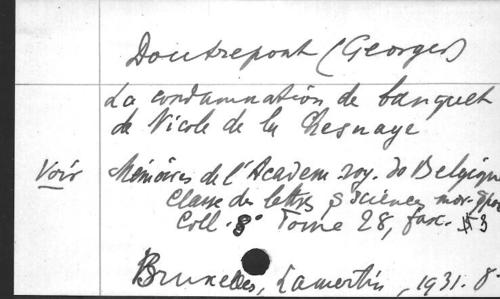 Doutrepont (Georges)
La condamnation de banquet
de Nicole de la Chesnaye
Voir Mémoires de l'Academ. roy. de Belgique
Classe des lettres & Sciences mor. & pol
Coll. 8° Tome 28, fasc. 3
Bruxelles, Lamertin, 1931. 8°